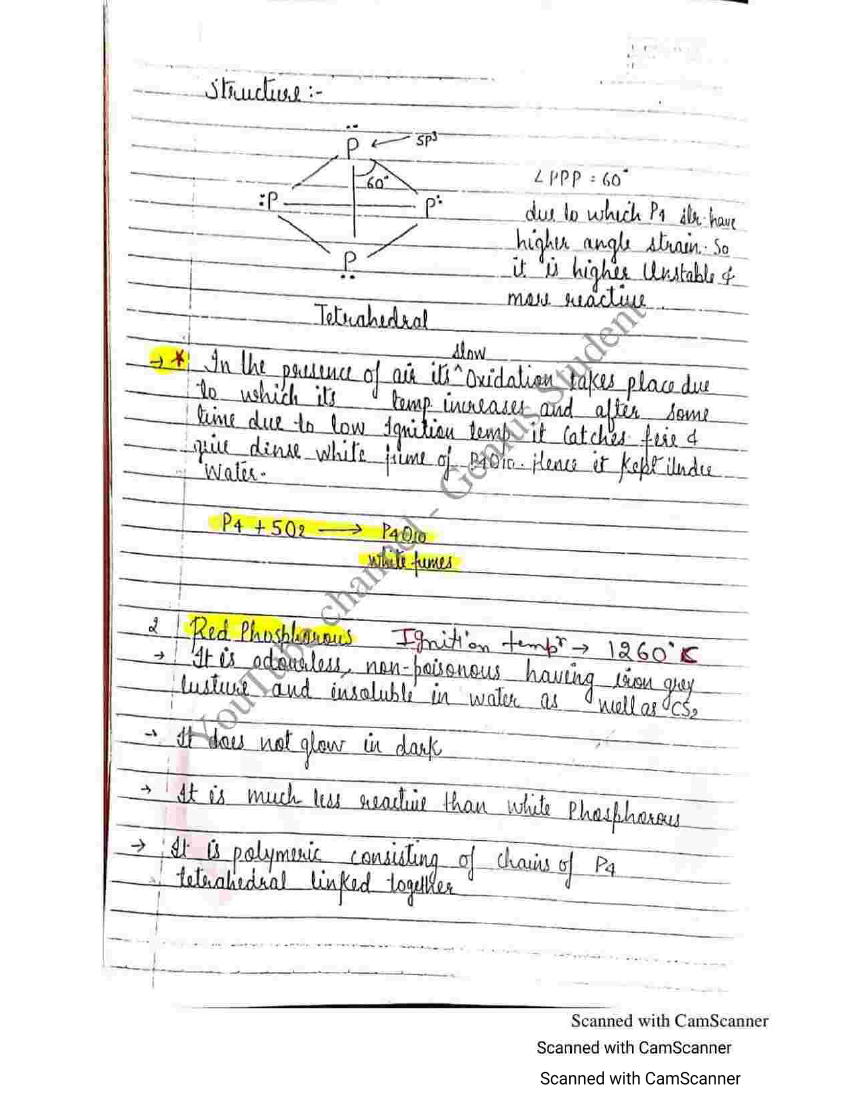 Structure :-
P ← SP³
60°
:P P:
P
∠PPP = 60°
due to which P4 str. have
higher angle strain. So
it is higher Unstable &
more reactive
Tetrahedral
→ * In the presence of air its ^slow Oxidation takes place due
to which its temp increases and after some
time due to low Ignition temp it Catches fire &
give dinse white fume of P4O10. Hence it Kept Under
Water.
P4 + 5O2 → P4O10
white fumes
2 Red Phosphorous Ignition tempr → 1260°K
→ It is odourless, non-poisonous having iron grey
lusture and insoluble in water as well as CS2
→ It does not glow in dark
→ It is much less reactive than white Phosphorous
→ It is polymeric consisting of chains of P4
tetrahedral linked together
YouTube channel - Genius Student
Scanned with CamScanner
Scanned with CamScanner
Scanned with CamScanner